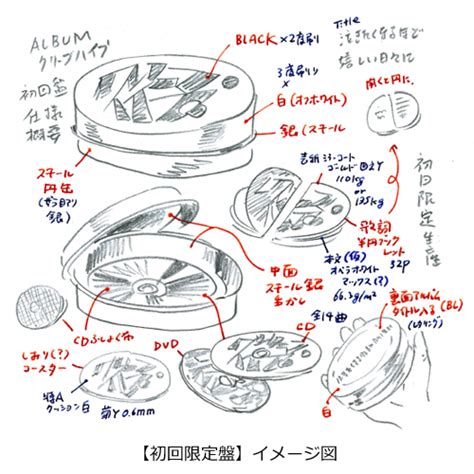 ALBUM
クリープハイプ
初回盤
仕様
概要
BLACK×2度刷り
Title
泣きたくなるほど
嬉しい日々に
3度刷り
×
白(オフホワイト)
銀(スチール
開くと円に。
スチール
円缶
銀)
表紙ミラーコート
ゴールド
110kg
or
135kg
初回限定生産
歌詞
半円ブック
レット
32P
本文(仮)
オペラホワイト
マックス(?)
66.3g/m²
中面
スチール銀
生かし
CDふしょく布
しおり(?)
コースター
DVD
CD
全14曲
裏面アルバム
タイトル入る(BL)
白
特A
クッション白
菊Y 0.6mm
【初回限定盤】イメージ図